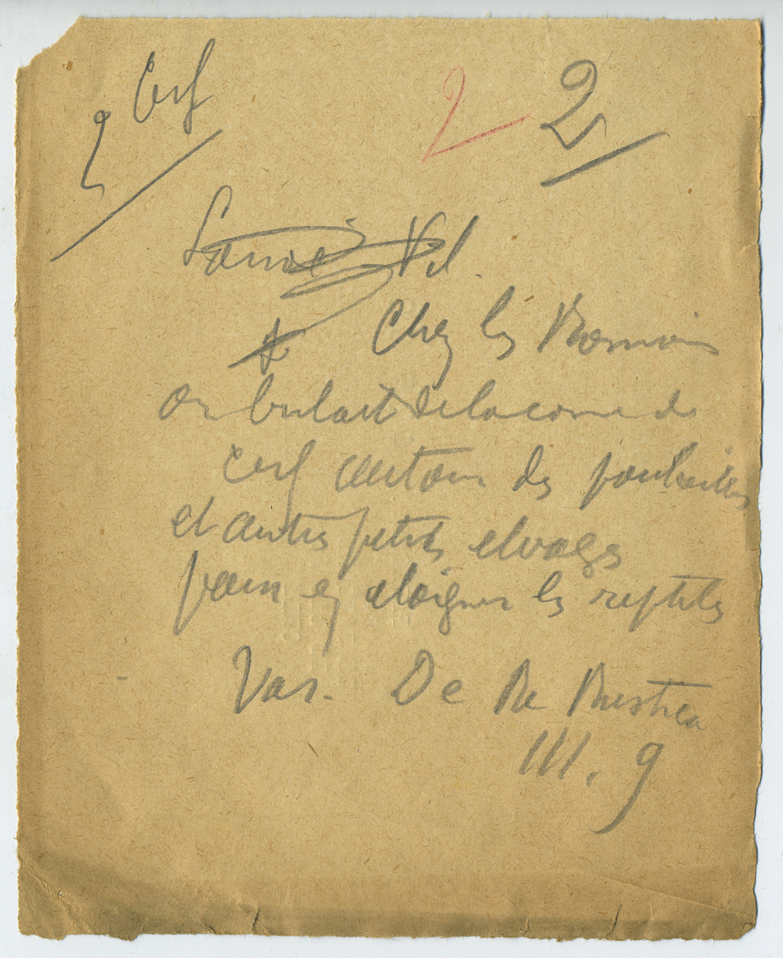 Cerf
2 2
Chez les Romains
on brulait de la corne de
cerf autour des poulaillers
et autres petits elvages
pour en eloigner les reptiles
Var. De Re Rustica
III. 9